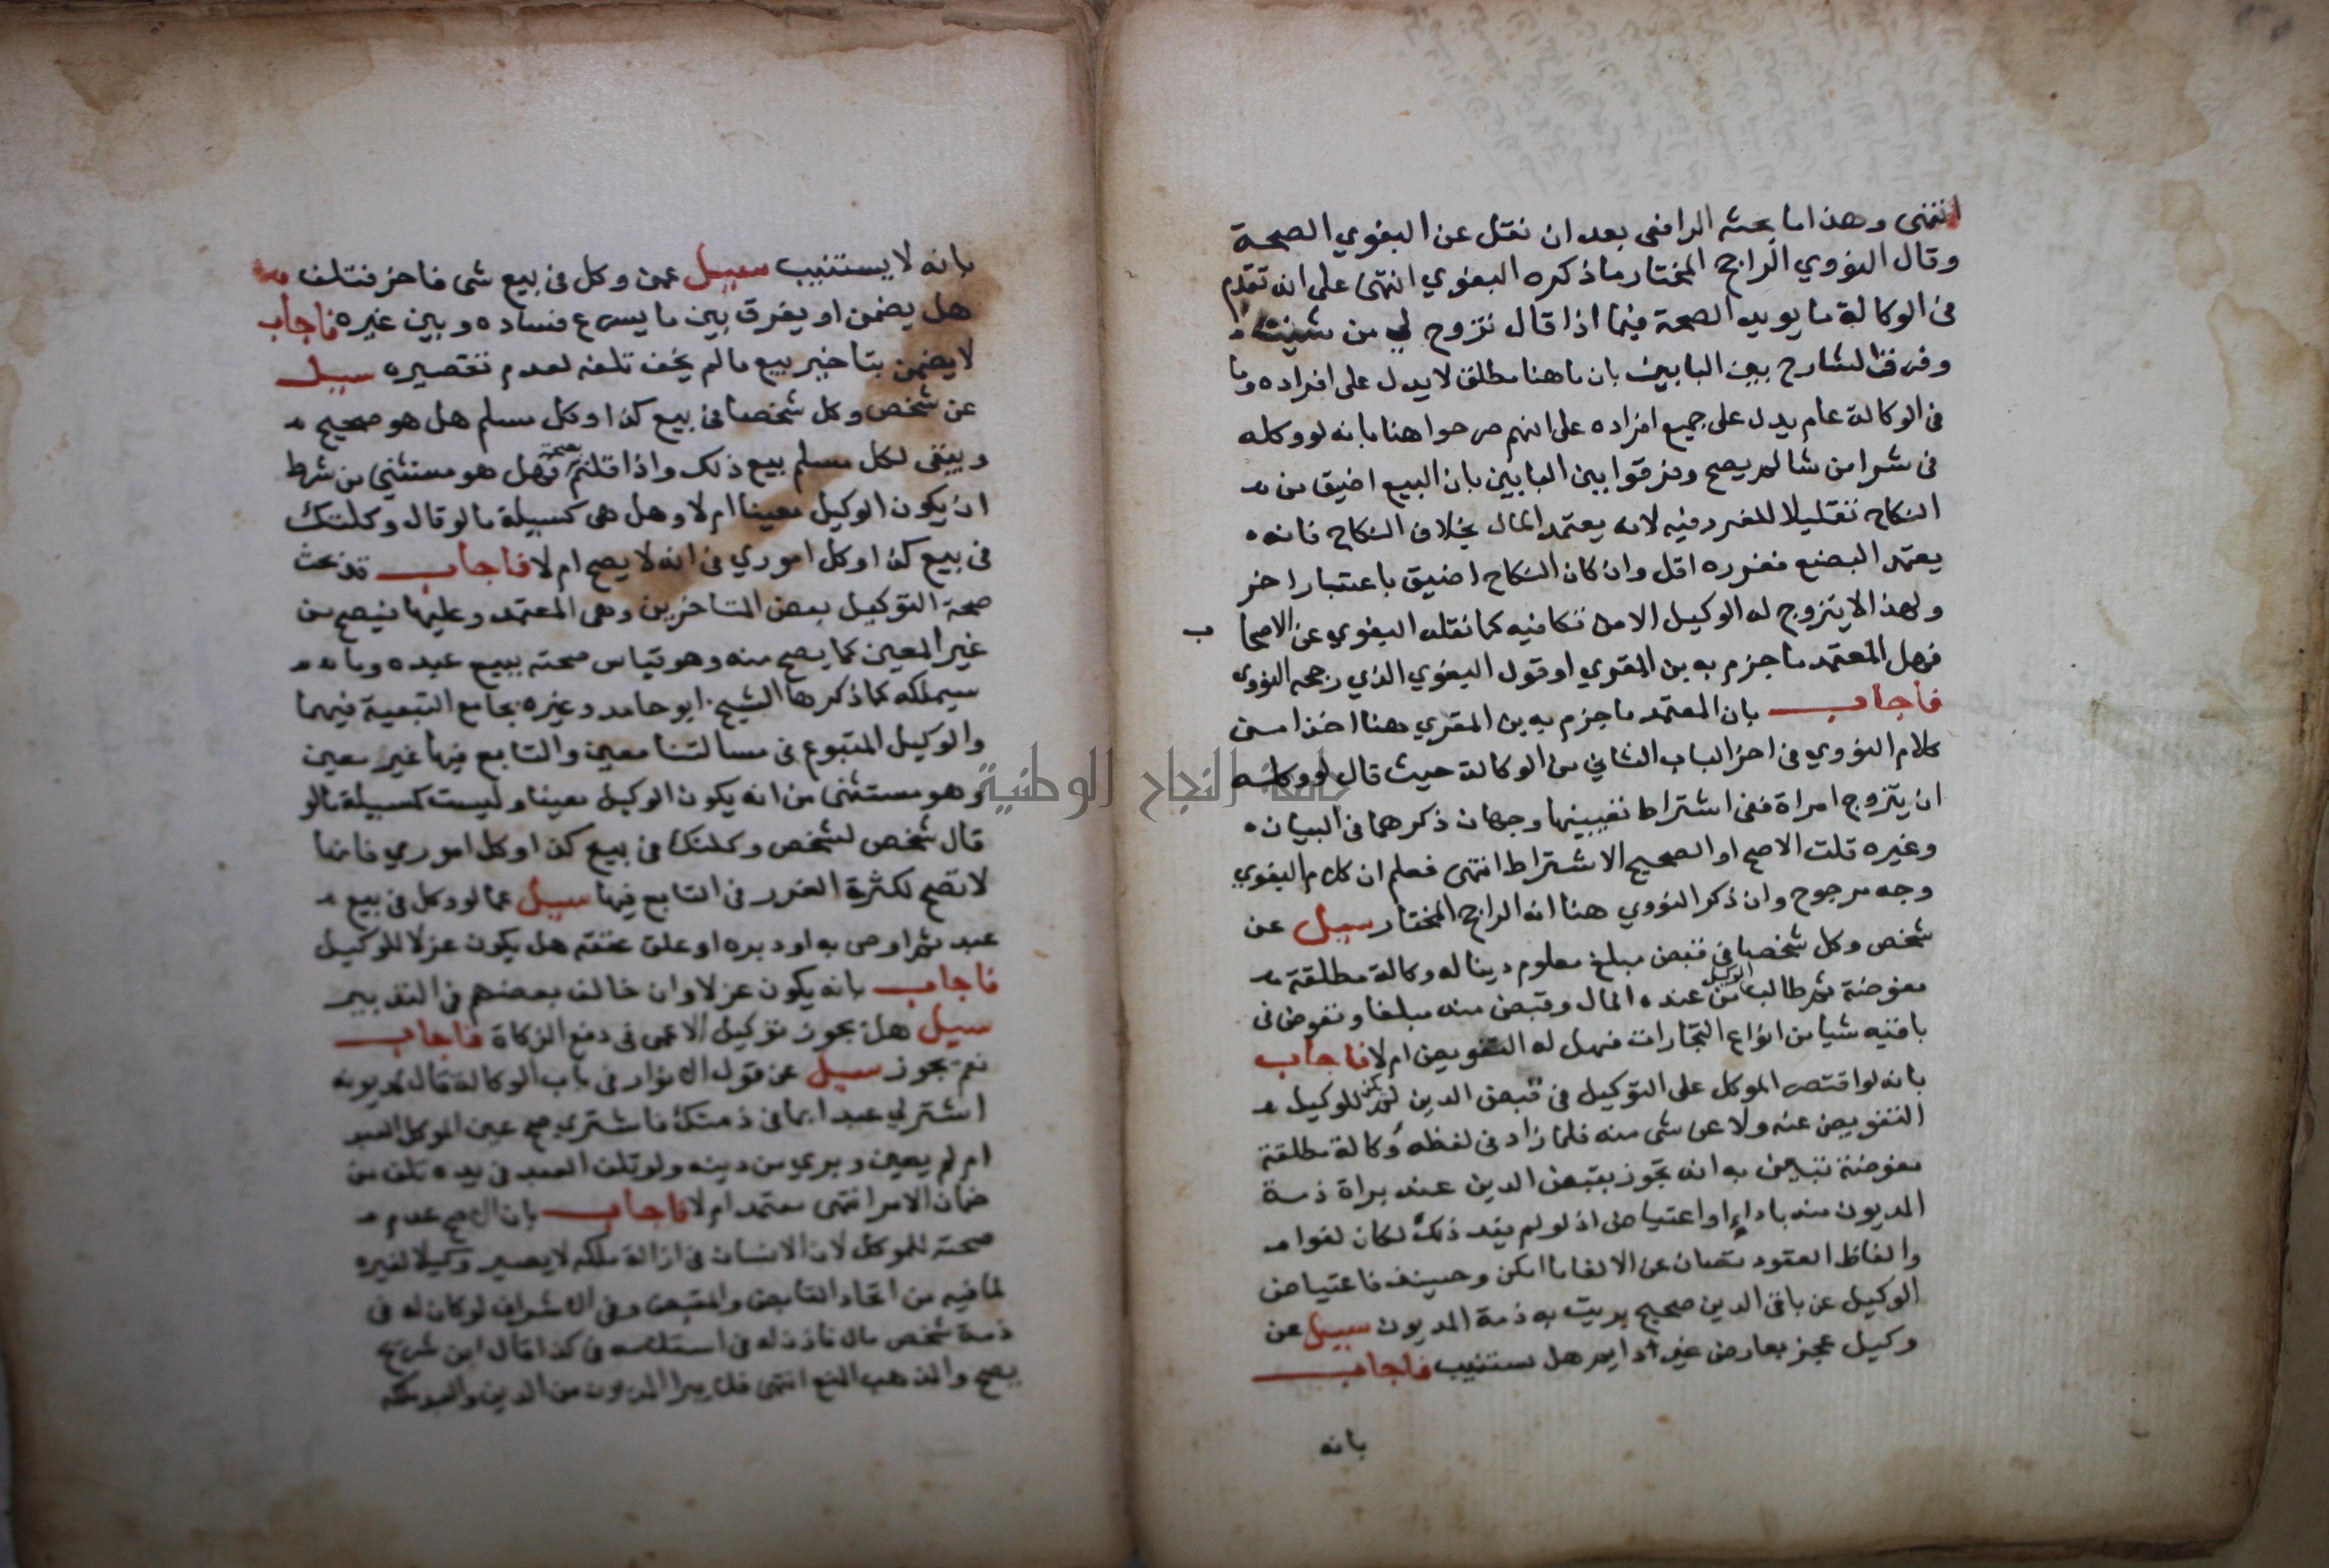 انتهى وهذا ما بحثه الرافعي بعد ان نقل عن البغوي الصحة
وقال النووي الراجح المختار ما ذكره البغوي انتهى على انه تقدم
في الوكالة ما يويد الصحة فيما اذا قال تزوج لي من شيت
وفرق الشارح بين البابين بان ما هنا مطلق لا يدل على افراده وما
في الوكالة عام يدل على جميع افراده على انهم صرحوا هنا بانه لو وكله
في شرا من شا لم يصح وفرقوا بين البابين بان البيع اضيق من
النكاح تقليلا للغرر فيه لانه يعتمد المال بخلاف النكاح فانه
يعتمد البضع فغرره اقل وان كان النكاح اضيق باعتبار اخر
ولهذا لا يتزوج له الوكيل الا من تكافيه كما نقله البغوي عن الاصحا ب
فهل المعتمد ما جزم به بن المقري او قول البغوي الذي رجحه النووي
فاجاب بان المعتمد ما جزم به بن المقري هنا اخذا من
كلام النووي في اخر الباب الثاني من الوكالة حيث قال لو وكله
ان يتزوج امراة ففي اشتراط تعيينها وجهان ذكرهما في البيان
وغيره قلت الاصح او الصحيح الاشتراط انتهى فعلم ان كلام البغوي
وجه مرجوح وان ذكر النووي هنا انه الراجح المختار سيل عن
شخص وكل شخصا في قبض مبلغ معلوم دينا له وكالة مطلقة
مفوضة ثم طالب الوكيل من عنده المال وقبض منه مبلغا وتعوض في
باقيه شيا من انواع التجارات فهل له التعويض ام لا فاجاب
بانه لو اقتصر الموكل على التوكيل في قبض الدين لم يكن للوكيل
التعويض عنه ولا عن شي منه فلما زاد في لفظه وكالة مطلقة
مفوضة تبين به انه تجوز بقبض الدين عند براة ذمة
المديون منه باداء او اعتياض اذ لو لم يفد ذلك لكان لغوا
والفاظ العقود تصان عن الالغا ما امكن وحينيذ فاعتياض
الوكيل عن باقي الدين صحيح بريت به ذمة المديون سيل عن
وكيل عجز بعارض غير دايم هل يستنيب فاجاب
بانه
بانه لا يستنيب سيل عمن وكل في بيع شي فاخر فتلف
هل يضمن او يفرق بين ما يسرع فساده وبين غيره فاجاب
لا يضمن بتاخير بيع ما لم يخف تلفه لعدم تقصيره سيل
عن شخص وكل شخصا في بيع كذا وكل مسلم هل هو صحيح
ويبقى لكل مسلم بيع ذلك واذا قلتم بصحته فهل هو مستثنى من شرط
ان يكون الوكيل معينا ام لا وهل هي كمسيلة ما لو قال وكلتك
في بيع كذا وكل اموري في انه لا يصح ام لا فاجاب قد بحث
صحة التوكيل بعض المتاخرين وهي المعتمد وعليها فيصح من
غير المعين كما يصح منه وهو قياس صحته ببيع عبده وما
سيملكه كما ذكرها الشيخ ابو حامد وغيره بجامع التبعية فيهما
والوكيل المتبوع في مسالتنا معين والتابع فيها غير معين
وهو مستثنى من انه يكون الوكيل معينا وليست كمسيلة ما لو
قال شخص لشخص وكلتك في بيع كذا وكل اموري فانها
لا تصح لكثرة الغرر في التابع فيها سيل عما لو وكل في بيع
عبد ثم اوصى به او دبره او علق عتقه هل يكون عزلا للوكيل
فاجاب بانه يكون عزلا وان خالف بعضهم في التدبير
سيل هل يجوز توكيل الاعمى في دفع الزكاة فاجاب
نعم يجوز سيل عن قول الانوار في باب الوكالة قال لمديونه
اشتر لي عبدا بما في ذمتك فاشتري صح عين الموكل العبد
ام لم يعين وبري من دينه ولو تلف العبد في يده تلف من
ضمان الامر انتهى معتمد ام لا فاجاب بان الاصح عدم
صحته للموكل لان الانسان في ازالة ملكه لا يصير وكيلا لغيره
لما فيه من اتحاد القابض والمقبض وفي الاشراف لو كان له في
ذمة شخص مال فاذن له في استلامه في كذا قال ابن شريح
يصح والمذهب المنع انتهى فلا يبرا المديون من الدين والعبد ملكه
جامعة النجاح الوطنية